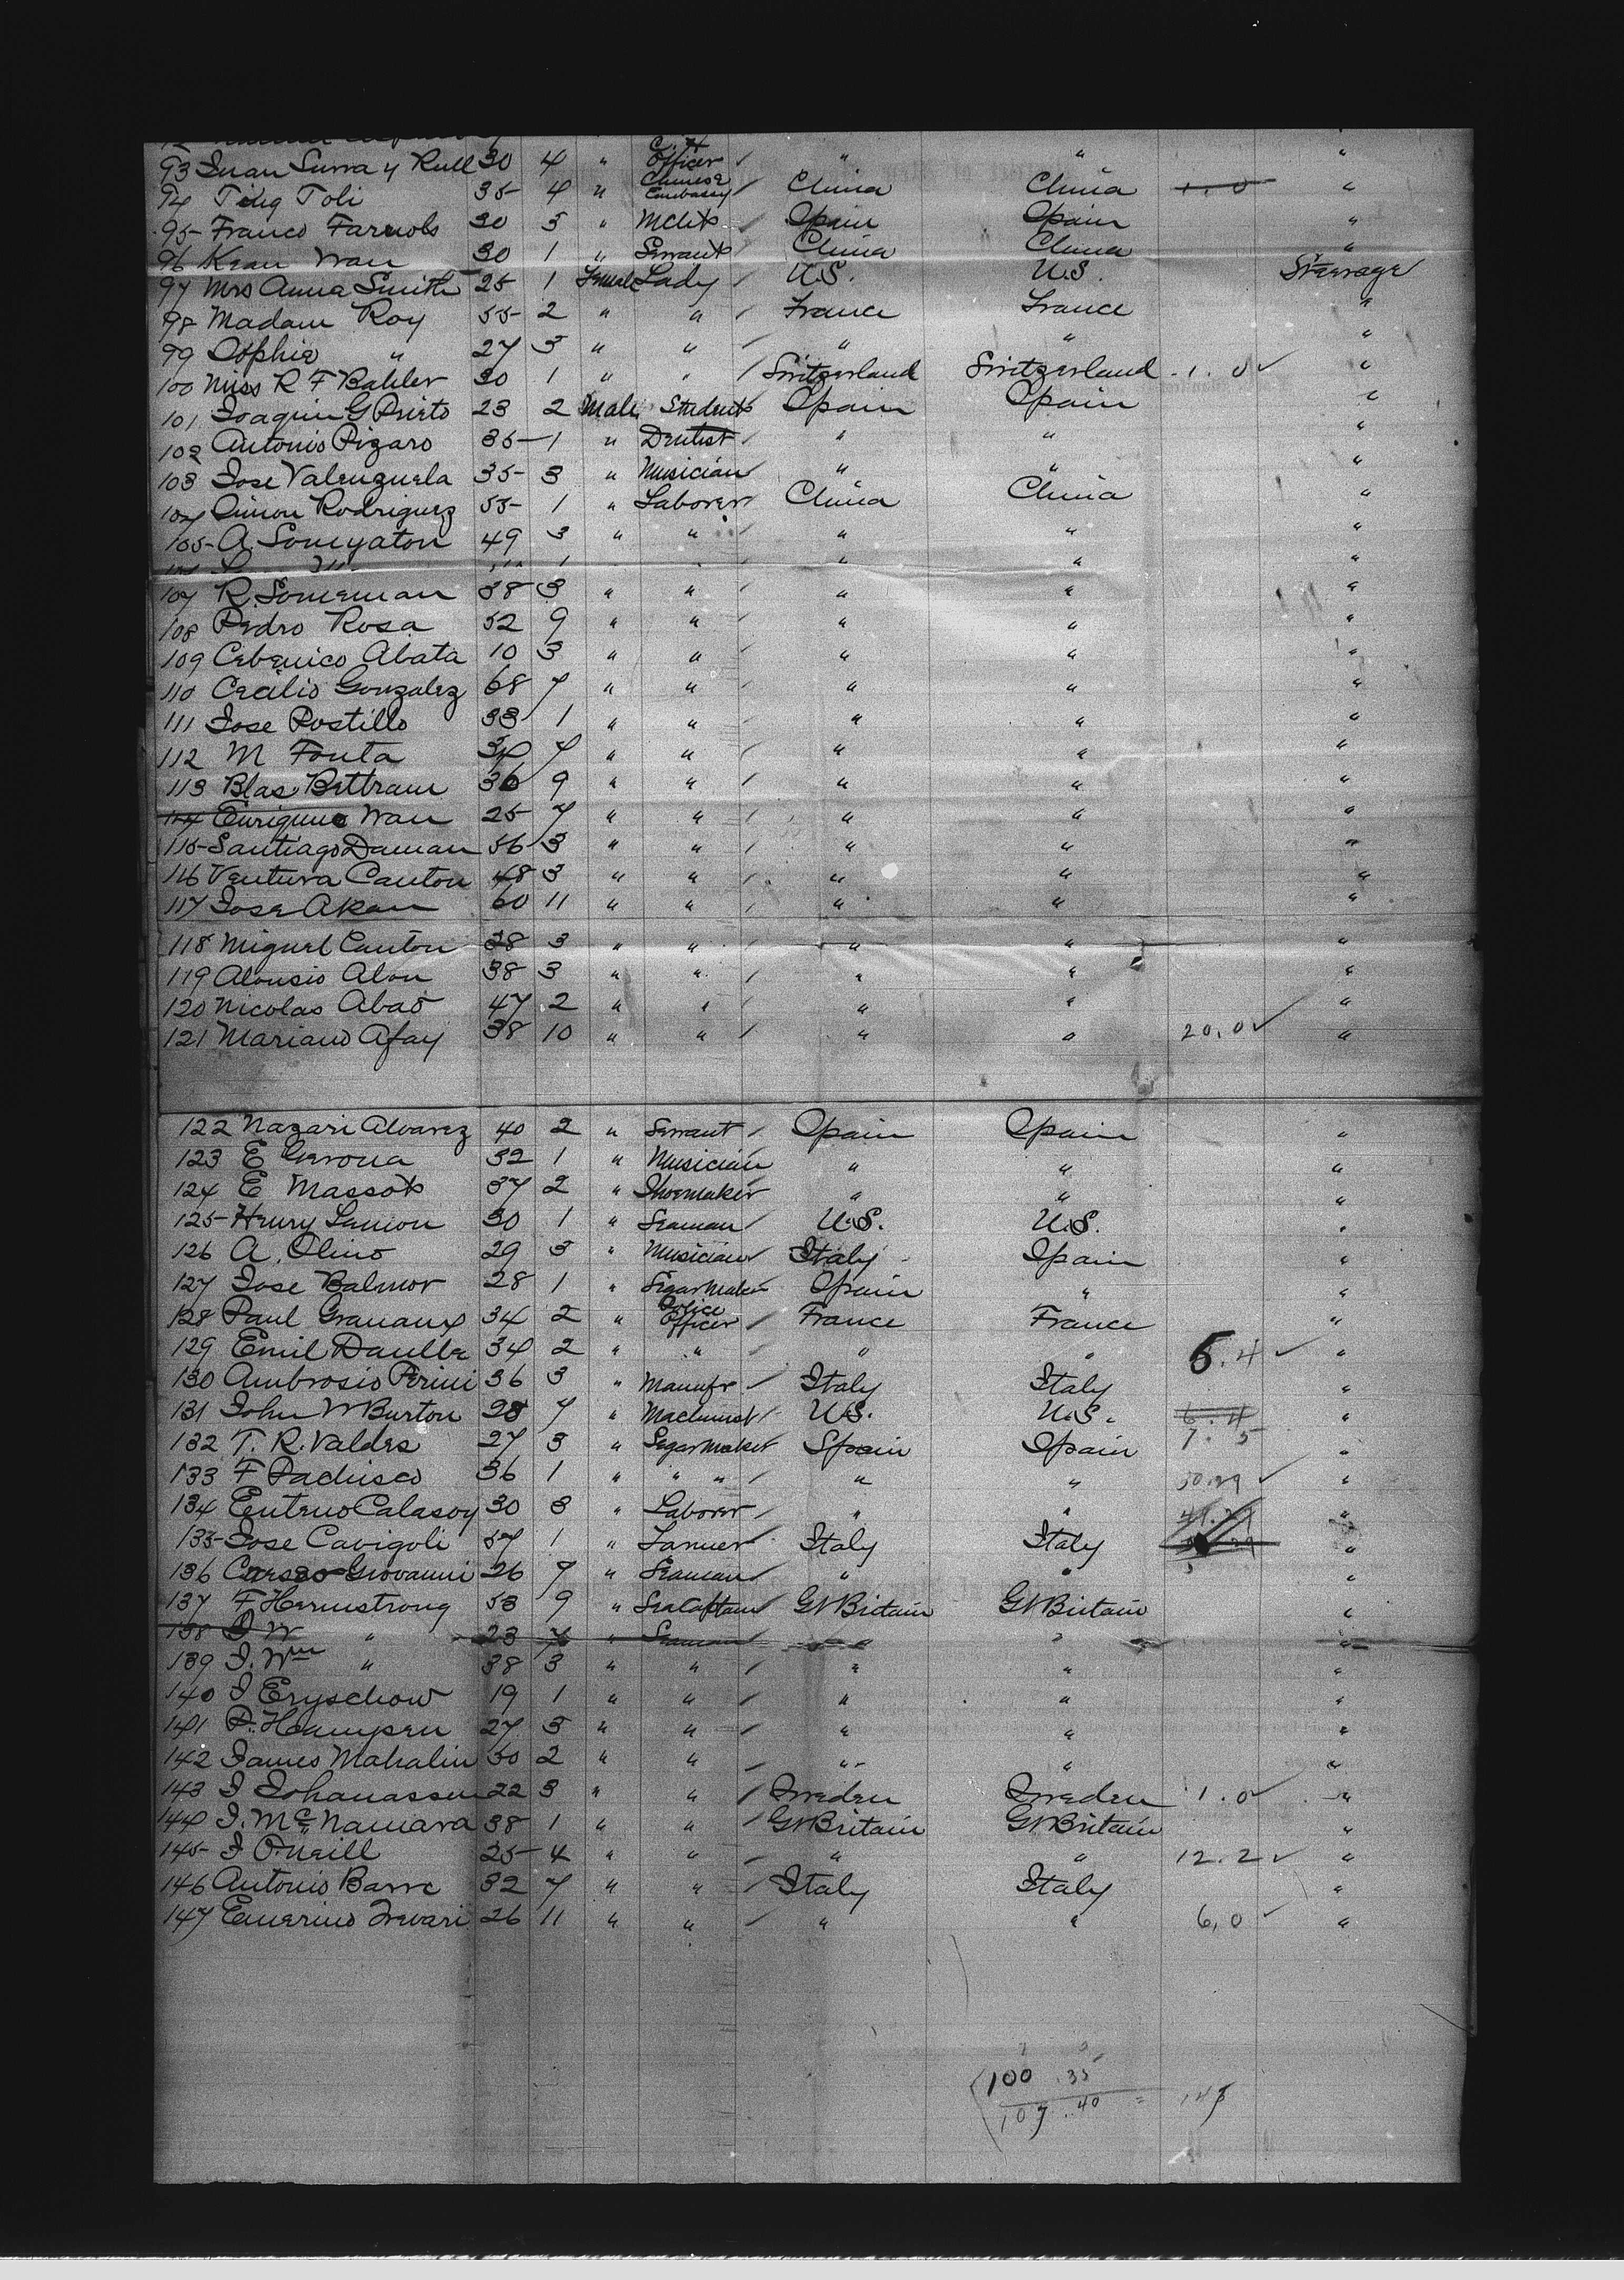 C. H
93 Juan Surra y Rull 30 4 " Officer / " " "
94 Ting Toli 35 4 " Chinese Embassy / China China 1.0 "
95 Franco Farnols 30 3 " Mcht / Spain Spain "
96 Kean Wan 30 1 " Servant China China "
97 Mrs Anna Smith 25 1 Female Lady / U.S. U.S. Steerage
98 Madam Roy 55 2 " " / France France "
99 Sophie " 27 3 " " / " " "
100 Miss R F Bahler 30 1 " " / Switzerland Switzerland 1. 0 ✓ "
101 Joaquin G Prieto 23 2 Male Student Spain Spain "
102 Antonio Pizaro 35 1 " Dentist / " " "
103 Jose Valenzuela 35 3 " Musician / " " "
104 Simon Rodriguez 55 1 " Laborer / China China "
105 A. Someyaton 49 3 " " / " " "
107 R. Someman 38 3 " " / " " "
108 Pedro Rosa 52 9 " " / " " "
109 Cebenico Abata 10 3 " " / " " "
110 Cecilio Gonzalez 68 7 " " / " " "
111 Jose Postillo 33 1 " " / " " "
112 M Fonta 34 7 " " / " " "
113 Blas Bettram 36 9 " " / " " "
114 Enrique Wan 25 7 " " / " " "
115 Santiago Daman 56 3 " " / " " "
116 Ventura Canton 48 3 " " / " " "
117 Jose Akan 60 11 " " / " " "
118 Miguel Canton 28 3 " " / " " "
119 Alonsio Alon 38 3 " " / " " "
120 Nicolas Abao 47 2 " " / " " "
121 Mariano Afay 38 10 " " / " " 20.0 ✓ "
122 Nazari Alvarez 40 2 " Servant / Spain Spain "
123 E Gerona 32 1 " Musician " " "
124 E Massot 37 2 " Shoemaker " " "
125 Henry Lamon 30 1 " Seaman / U.S. U.S. "
126 A. Olino 29 3 " Musician / Italy Spain "
127 Jose Balmor 28 1 " Segar Maker Spain " "
128 Paul Granaux 34 2 " Police Officer / France France "
129 Emil Daulle 34 2 " " / " " 5.4 ✓ "
130 Ambrosio Perini 36 3 " Manufr / Italy Italy "
131 John W Burton 28 7 " Machinist / U.S. U.S. 6.4 "
132 T. R. Valdes 27 3 " Segar Maker Spain Spain 7. 5 "
133 F Pachisco 36 1 " " " / " " 50.29 ✓ "
134 Calasoy 30 3 " Laborer / " " "
135 Jose Cavigoli 57 1 " Farmer / Italy Italy "
136 Giovanni 26 7 " Seaman / " " "
137 F Hermstrong 53 9 " Sea Captain / Gt Britain Gt Britain "
138 J W " 23 7 " Seaman / " " "
139 J. Wm " 38 3 " " / " " "
140 J Eryschow 19 1 " " / " " "
141 P. Hampen 27 3 " " / " " "
142 James Mahalin 30 2 " " / " " "
143 J Johanassen 22 3 " " / Sweden Sweden 1.0 ✓ "
144 J. McNamara 38 1 " " / Gt Britain Gt Britain "
145 J O'Neill 25 4 " " / " " 12.2 ✓ "
146 Antonio Barre 32 7 " " / Italy Italy "
147 Emerino 26 11 " " / " " 6.0 ✓ "
100 .35
107 .40 = 147